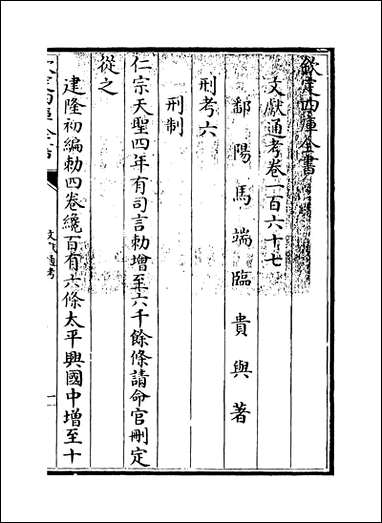 欽定四庫全書
文獻通考卷一百六十七
鄱陽馬端臨貴與著
刑考六
刑制
仁宗天聖四年有司言勅增至六千餘條請命官刪定
從之
建隆初編勅四卷纔百有六條太平興國中增至十
欽定四庫全書
文獻通考
一